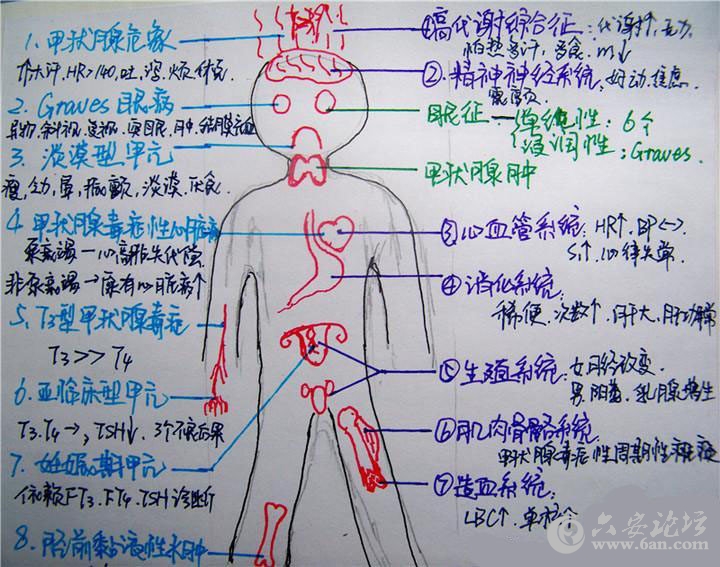 1. 甲状腺危象
大汗, HR>140, 吐, 泻, 烦
2. Graves 眼病
异物, 斜视, 复视, 突眼, 肿, 结膜充血
3. 淡漠型甲亢
瘦, 乏力, 晕, 痴颤, 淡漠, 厌食
4. 甲状腺毒症性心脏病
尿毒渴—心高排失代偿
→原有心脏病
5. T3型甲状腺毒症
T3>>T4
6. 亚临床型甲亢
T3.T4→, TSH↓. 3个不良后果
7. 妊娠期甲亢
依赖FT3. FT4. TSH诊断
8. 胫前黏液性水肿
①高代谢综合征: 代谢↑, 乏力
怕热多汗, 多食, m↓
②. 精神神经系统: 好动, 焦虑
震颤
眼征—单纯性: 6个
浸润性: Graves.
甲状腺肿
③心血管系统: HR↑. BP<->
S₁↑. 心律失常
④消化系统:
稀便. 次数↑. 肝大. 肝功异常
⑤生殖系统: 女月经改变
男.阳萎. 乳腺增生
⑥肌肉骨骼系统
甲状腺毒症性周期性瘫痪
⑦造血系统:
LBC↑. 单核个
六安论坛
www.6an.com